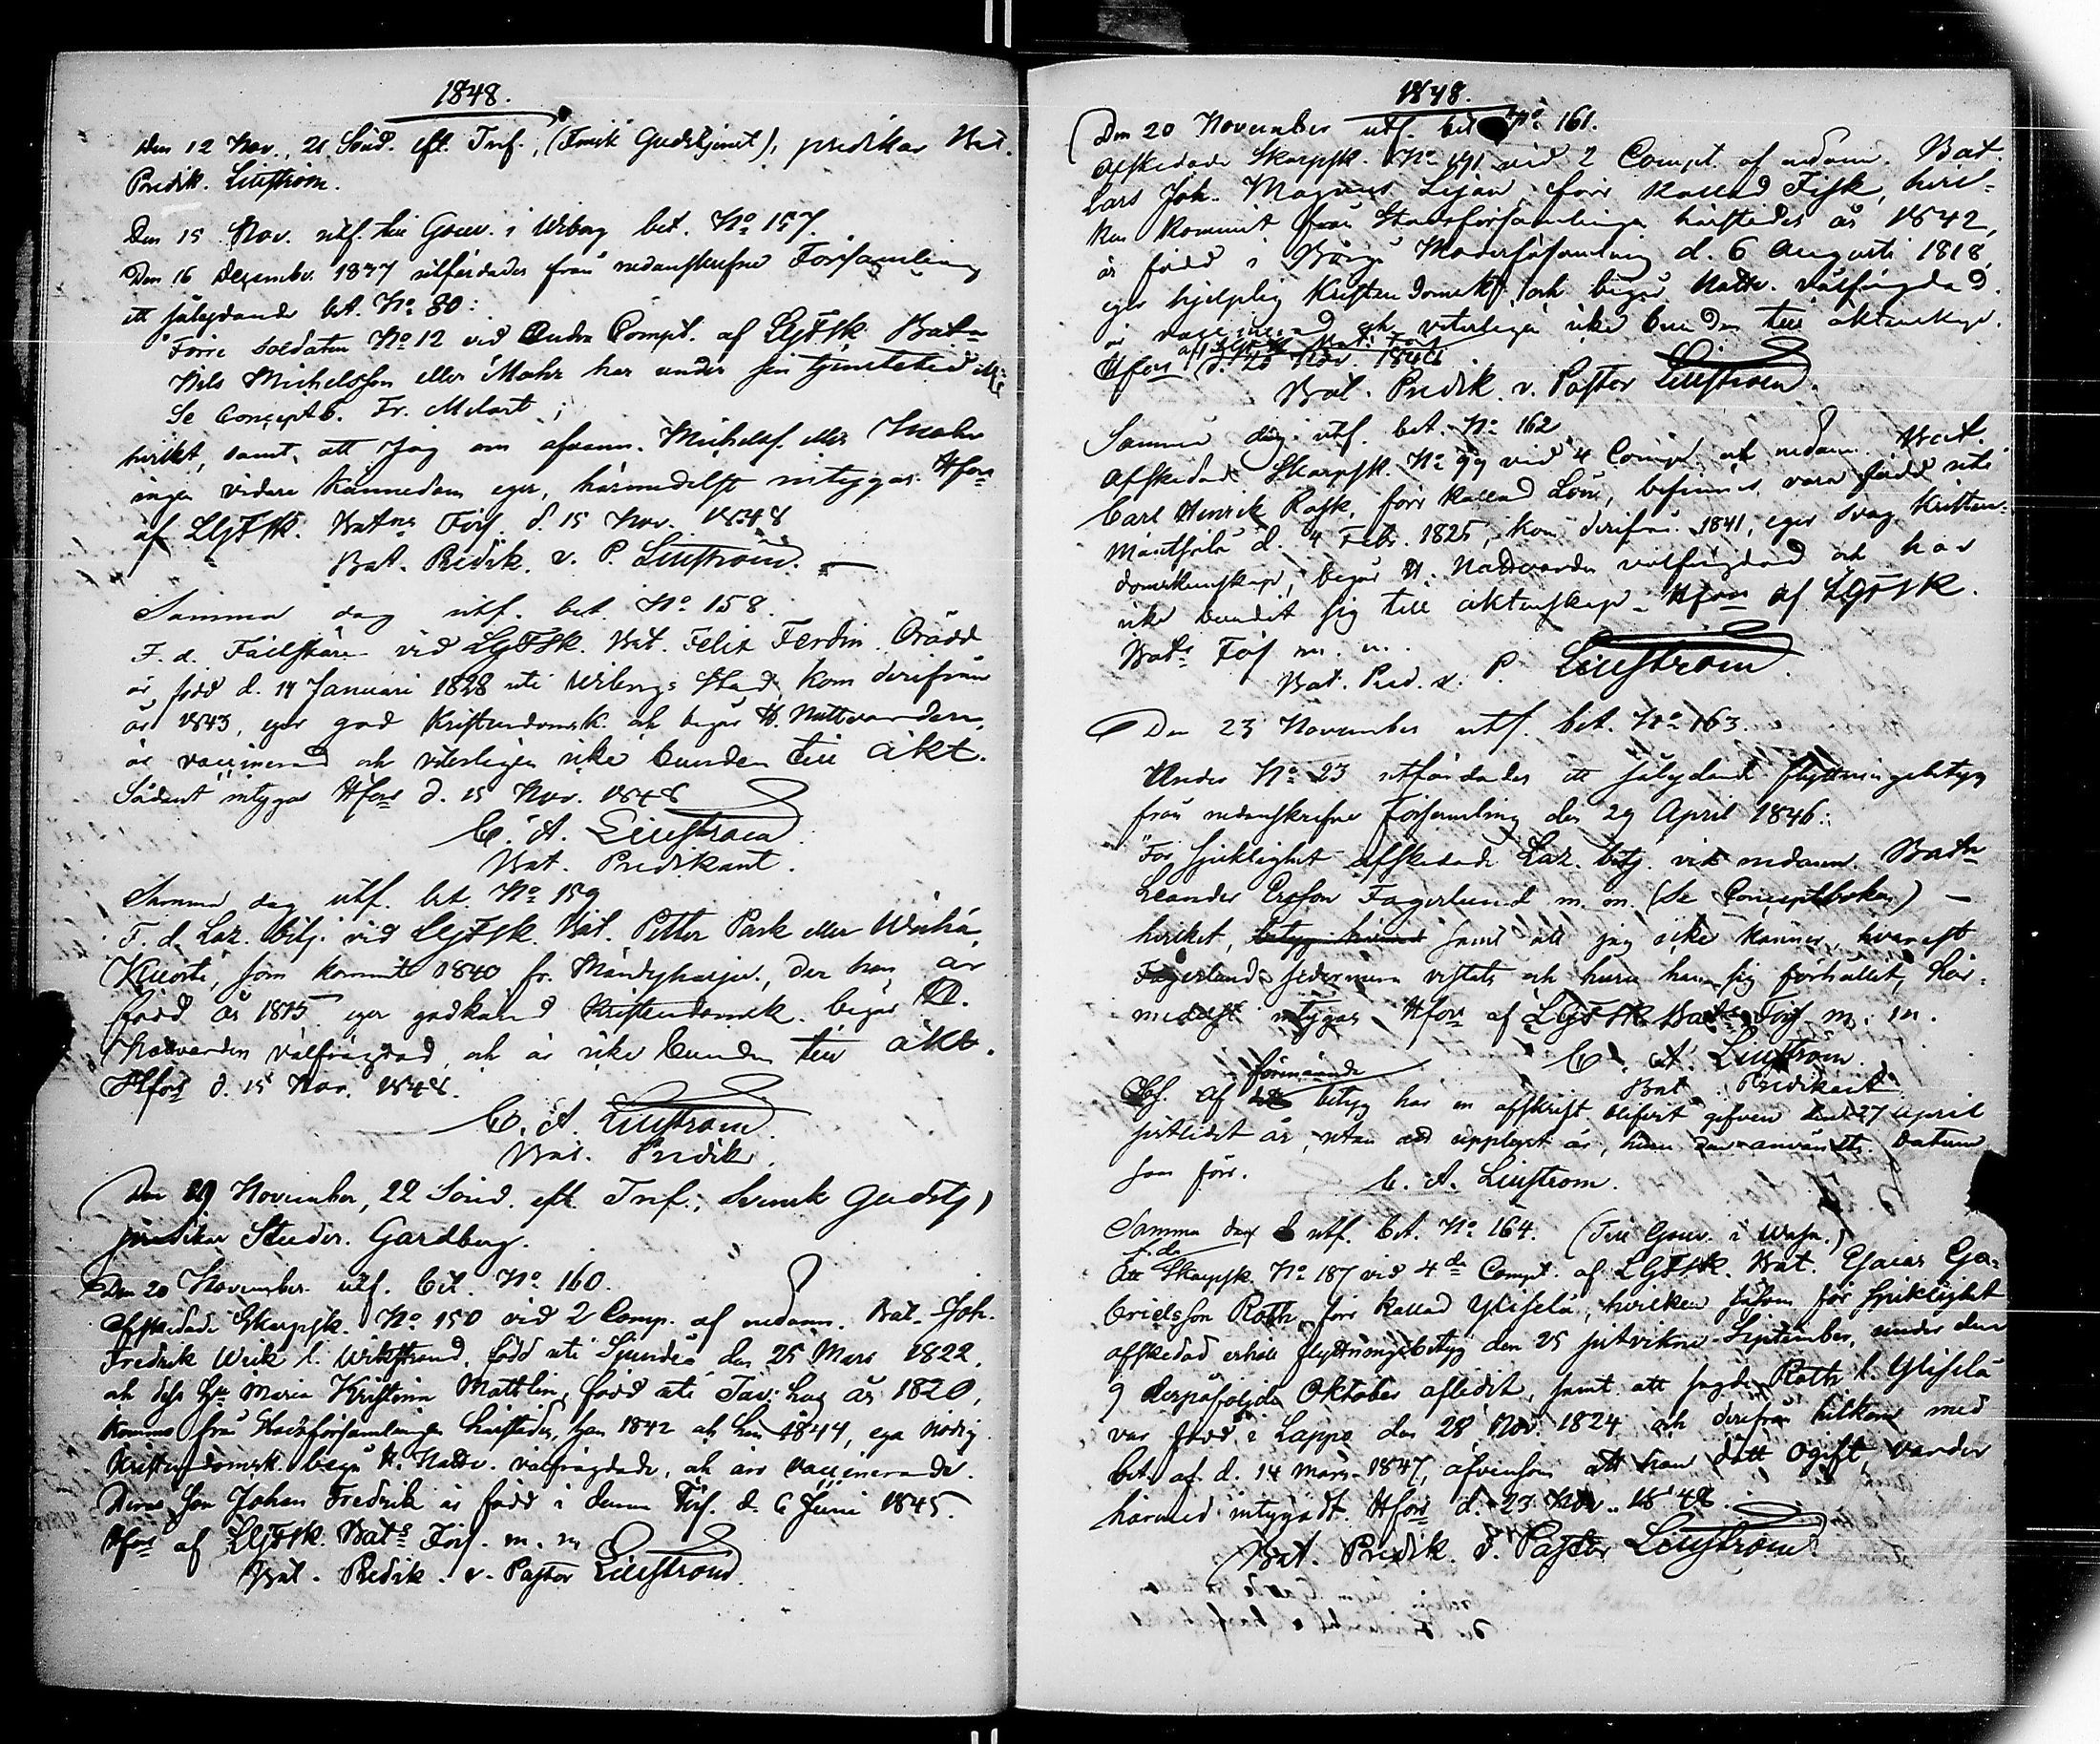 1848.
Den 12 Nov., 21 Sönd. eft. Tref., (Finsk Gudstjenst), predikar Bat.
Predik. Liuström.
Den 15 Nov. utf. till Gouv. i Wiborg bet. No 157.
Den 16 December 1847 utfärdades från nedanskrefne Församling
ett sålydande bet. No 80:
"Förre soldaten No 12 vid Andra Compt. af LGFSk. Batn
Nils Michelsson eller Mohr har under sin tjenstetid
Se Conceptb. Fr. Melart;
hvilket, samt, att jag om ofvann. Michelss. eller Mohr
ingen vidare kännedom eger, härmedelst intygas. Hfors
af LGFSk. Batns Förs. d. 15 Nov. 1848
Bat. Predik. v. P. Liuström.
Samma dag utf. bet. No 158.
F. d. Fältskären vid LGFSk. Bat. Felix Ferdin. Orädd
är född d. 14 Januari 1828 uti Wiborgs Stad, kom derifrån
år 1843, eger god Kristendomsk. och begår H. Nattvarden,
är vaccinerad och veterligen icke bunden till äkt.
Sådant intygar Hfors d. 15 Nov. 1848
C. A. Liuström
Bat. Predikant.
Samma dag utf. bet. No 159
F. d. Laz. betj. vid LGFSk. Bat. Petter Park eller
som kommit 1840 fr. Mändyharju, der han är
född år 1815 eger godkänd Kristendomsk. begår H.
Nattvarden välfrägdad, och är icke bunden till äkt.
Hfors d. 15 Nov. 1848.
C. A. Liuström
Bat. Predik.
Den 19 November, 22 Sönd. eft. Tref., Svensk Gudstj,
predikar Studer. Gardberg.
Den 20 November utf. bet. No 160.
Afskedade Skarpsk. No 150 vid 2 Comp. af nedann. Bat. Joh.
Fredrik Weik l. Wikstrand, född uti Sjundeå den 25 Mars 1822,
och dess Hu Maria Kristina Mattlin, född uti Tav:hus år 1820,
komne från Stadsförsamlingen härstädes, han 1842 och hon 1844, ega nödig
Kristendomsk. begå H. Nattv. välfrägdade, och äro vaccinerade.
Deras son Johan Fredrik är född i denna Förs. d. 6 Juni 1845.
Hfors af LGFSk. Bats Förs. m. m
Bat. Predik. v. Pastor Liuström.
1848.
Den 20 November utf. bet No 161.
Afskedade Skarpsk. No 191 vid 2 Compt. af nedann. Bat.
Lars Joh. Magnus Lejan, förr kallad Fisk, hvil-
ken kommit från Stadsförsamlingen härstädes år 1842,
är född i Borgå Moderförsamling d. 6 Augusti 1818,
eger hjelplig Kristendomsk, och begår Nattv. välfrägdad.
är vaccinerad och veterligen icke bunden till äktenskap.
Hfors d. 20 Nov 1848
Bat. Predik. v. Pastor Liuström.
Samma dag utf. bet. No 162
Afskedade Skarpsk. No 99 vid 4 Compt. af nedann. Bat.
Carl Henrik Rask, förr kallad Löv, befinnes vara född uti
Mäntsälä d. 4 Febr. 1825, kom derifrån 1841, eger svag Kristen-
domskunskap, begår H. Nattvarden välfrägdad och har
icke bundit sig till äktenskap. Hfors af LGFSk.
Bats Förs m. m.
Bat. Pred. v. P. Liuström
Den 23 November utf. bet. No 163.
Under No 23 utfärdades ett sålydande flyttningsbetyg
från nedanskrefne Församling den 29 April 1846:
"För sjuklighet afskedade Laz. betj. vid nedann. Batn
Leander Ersson Fagerlund m. m. (Se Conceptboken) —
hvilket, samt att jag icke känner, hvarest
Fagerlund sedermera vistats och huru han sig förhållit, här-
medelst intygas Hfors af LGFSk Bats Förs m. m.
C. A. Liuström
Bat. Predikant
Obs. Af förenämnde betyg har en afskrift blifvit gifven den 27 April
sistlidet år, utan att upplyst är, huru den användts. Datum
som förr.
C. A. Liuström.
Samma dag utf. bet. No 164. (Till Gouv. i Wasa.)
Att f. d. Skarpsk. No 187 vid 4de Compt. af LGFSk. Bat. Esaias Ga-
brielsson Roth, förr kallad Ylisela, hvilken såsom för sjuklighet
afskedad erhöll flyttningsbetyg den 25 sistvikne September, under den
9 derpåföljde Oktober aflidit, samt att sagde Roth l. Ylisela
var född i Lappo den 28 Nov. 1824 och derifrån hitkom med
bet. af d. 14 Mars 1847, äfvensom att han dött ogift, varder
härmed intygadt. Hfors d. 23 Nov. 1848.
Bat. Predik. v. Pastor Liuström